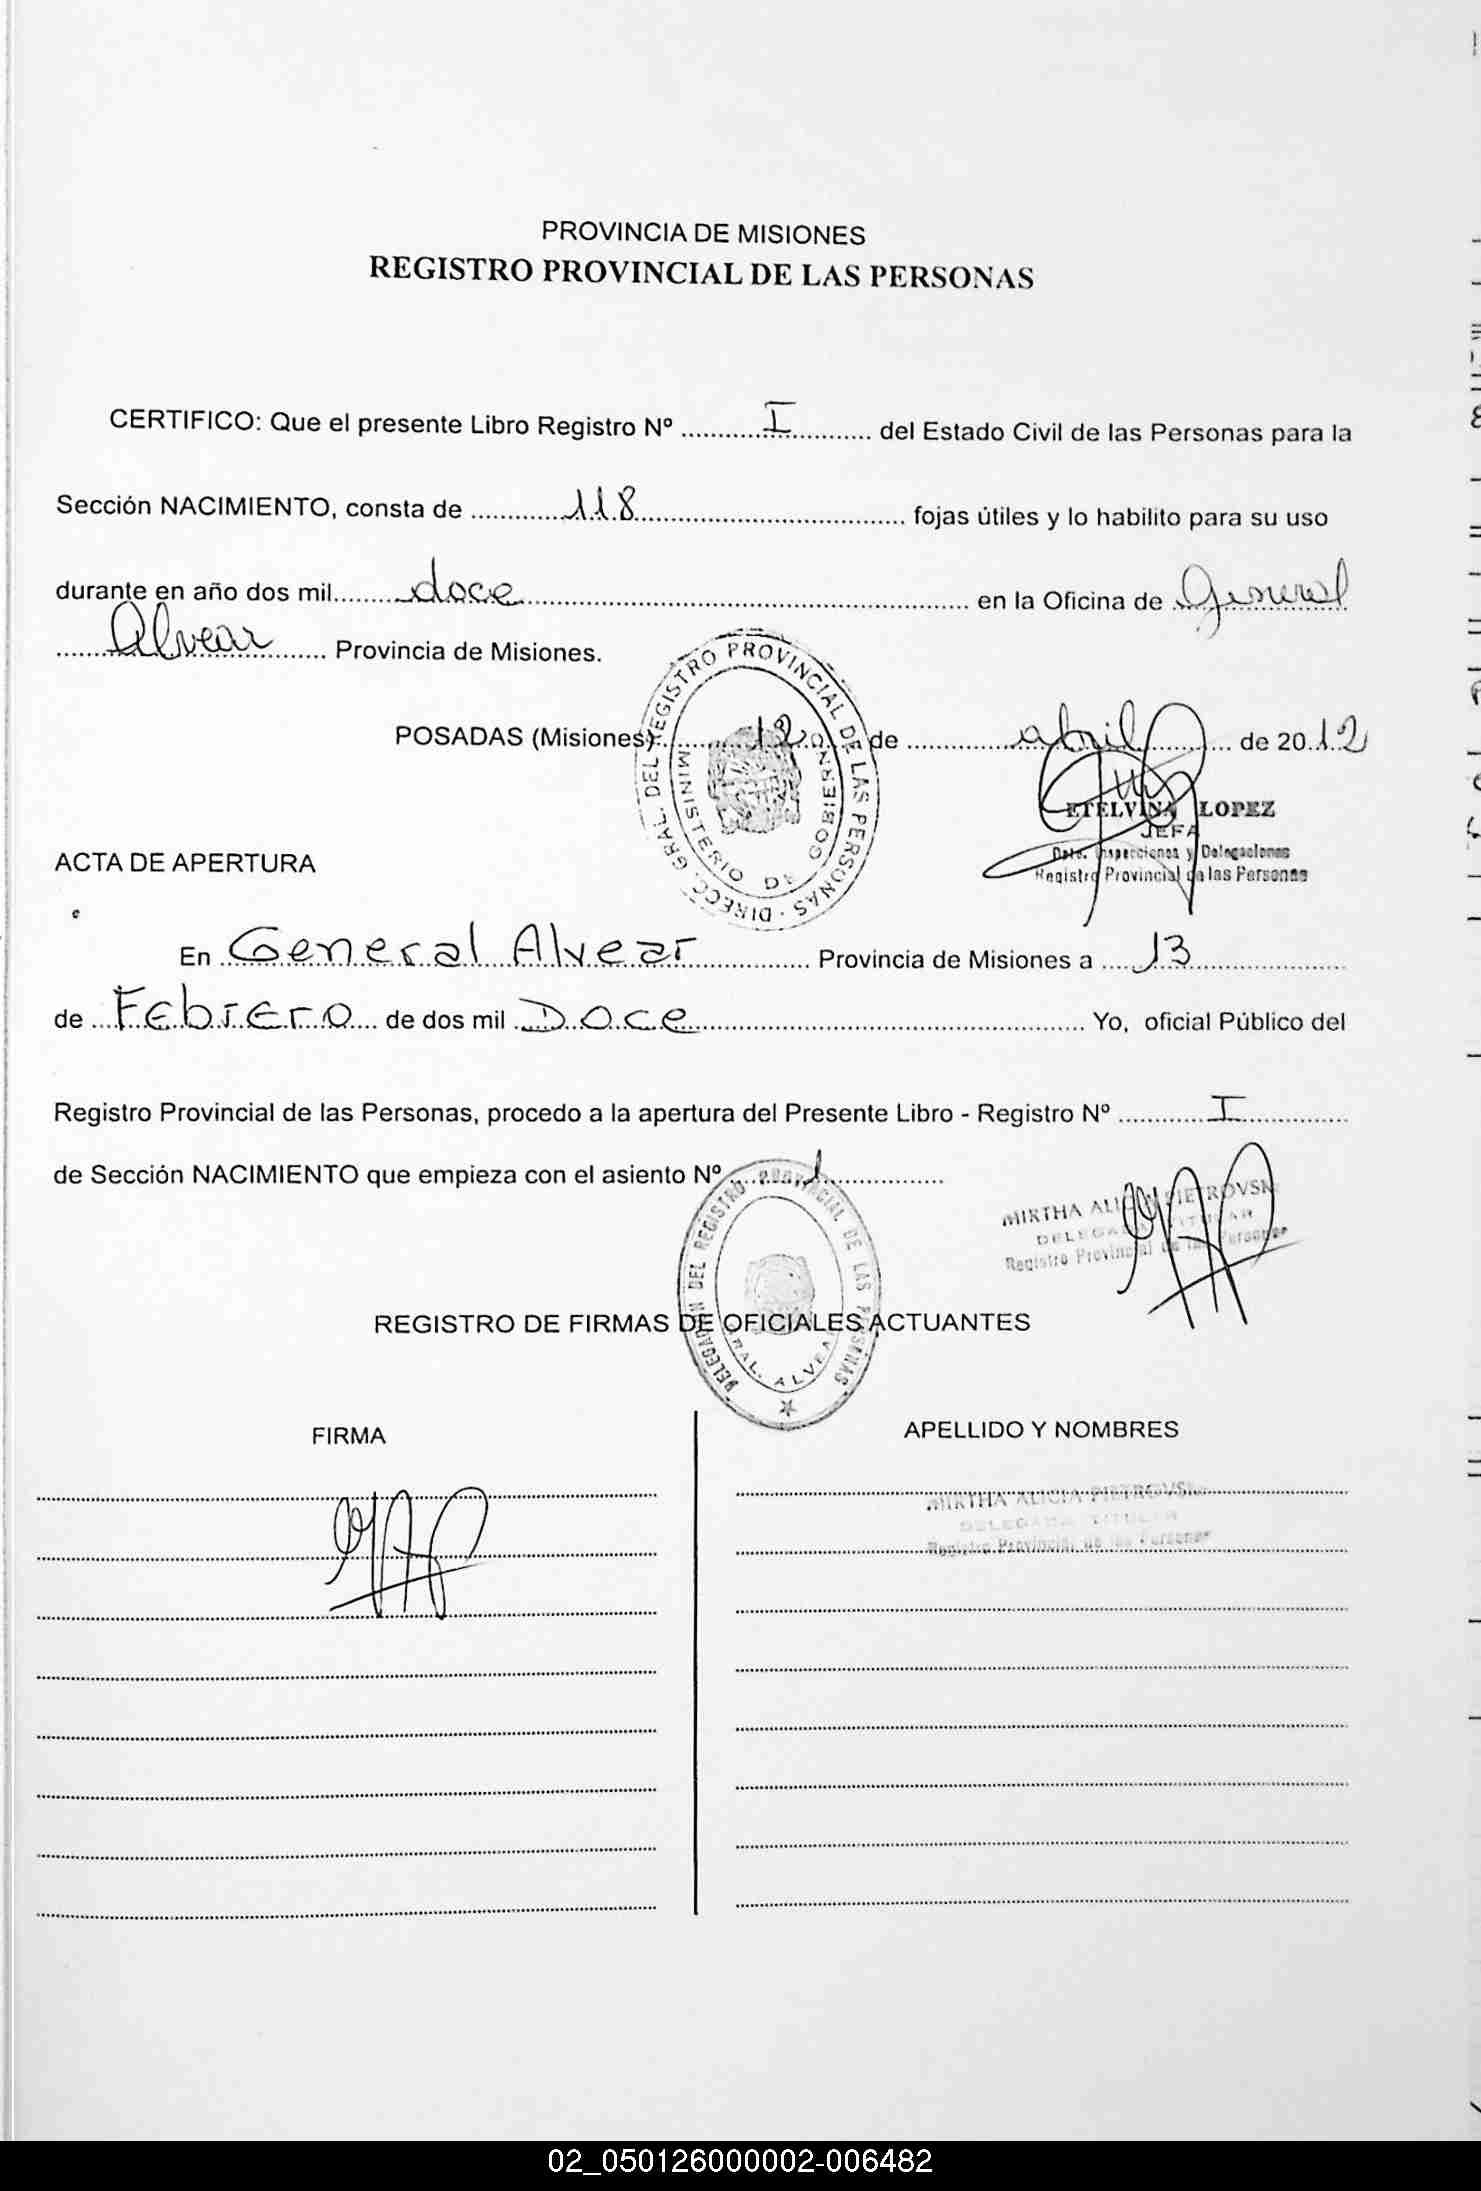 PROVINCIA DE MISIONES
REGISTRO PROVINCIAL DE LAS PERSONAS
CERTIFICO: Que el presente Libro Registro Nº I del Estado Civil de las Personas para la
Sección NACIMIENTO, consta de 118 fojas útiles y lo habilito para su uso
durante en año dos mil doce en la Oficina de General
Alvear Provincia de Misiones.
DIRECC. GRAL. DEL REGISTRO PROVINCIAL DE LAS PERSONAS
MINISTERIO DE GOBIERNO
POSADAS (Misiones) 12 de abril de 2012
ETELVINA LOPEZ
JEFA
Dpto. Inspecciones y Delegaciones
Registro Provincial de las Personas
ACTA DE APERTURA
En General Alvear Provincia de Misiones a 13
de Febrero de dos mil Doce Yo, oficial Público del
Registro Provincial de las Personas, procedo a la apertura del Presente Libro - Registro Nº I
de Sección NACIMIENTO que empieza con el asiento Nº 1
MIRTHA ALICIA PIETROVSKI
DELEGADA TITULAR
Registro Provincial de las Personas
DELEGACION DEL REGISTRO PROVINCIAL DE LAS PERSONAS
GRAL. ALVEAR
REGISTRO DE FIRMAS DE OFICIALES ACTUANTES
FIRMA APELLIDO Y NOMBRES
MIRTHA ALICIA PIETROVSKI
DELEGADA TITULAR
Registro Provincial de las Personas
02_050126000002-006482